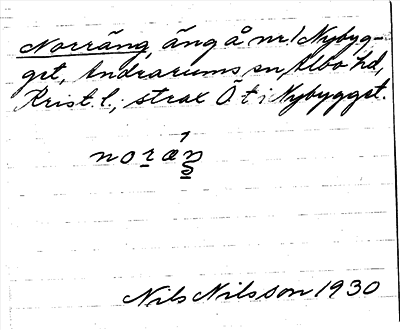 Norräng, äng å nr 1 Nybyg-
get, Andrarums sn, Albo hd,
Krist. l., strax Ö t i Nybygget.
noræŋ
Nils Nilsson 1930